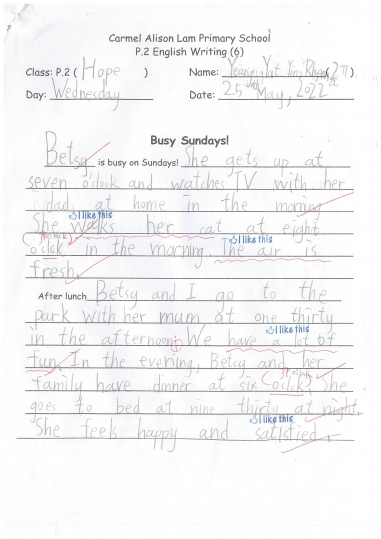 Carmel Alison Lam Primary School
P.2 English Writing (6)
Class: P.2 ( Hope ) Name: Yeung Yat Yin (27)
Day: Wednesday Date: 25th May, 2022
Busy Sundays!
Betsy is busy on Sundays! She gets up at
seven o'clock and watches TV with her
dad at home in the morning.
I like this
She walks her cat at eight
I like this
o'clok in the morning. The air is
fresh.
After lunch Betsy and I go to the
park with her mum at one thirty
I like this
in the afternoon. We have a lot of
fun. In the evening, Betsy and her
family have dinner at six o'clok. She
goes to bed at nine thirty at night.
I like this
She feels happy and satistied.